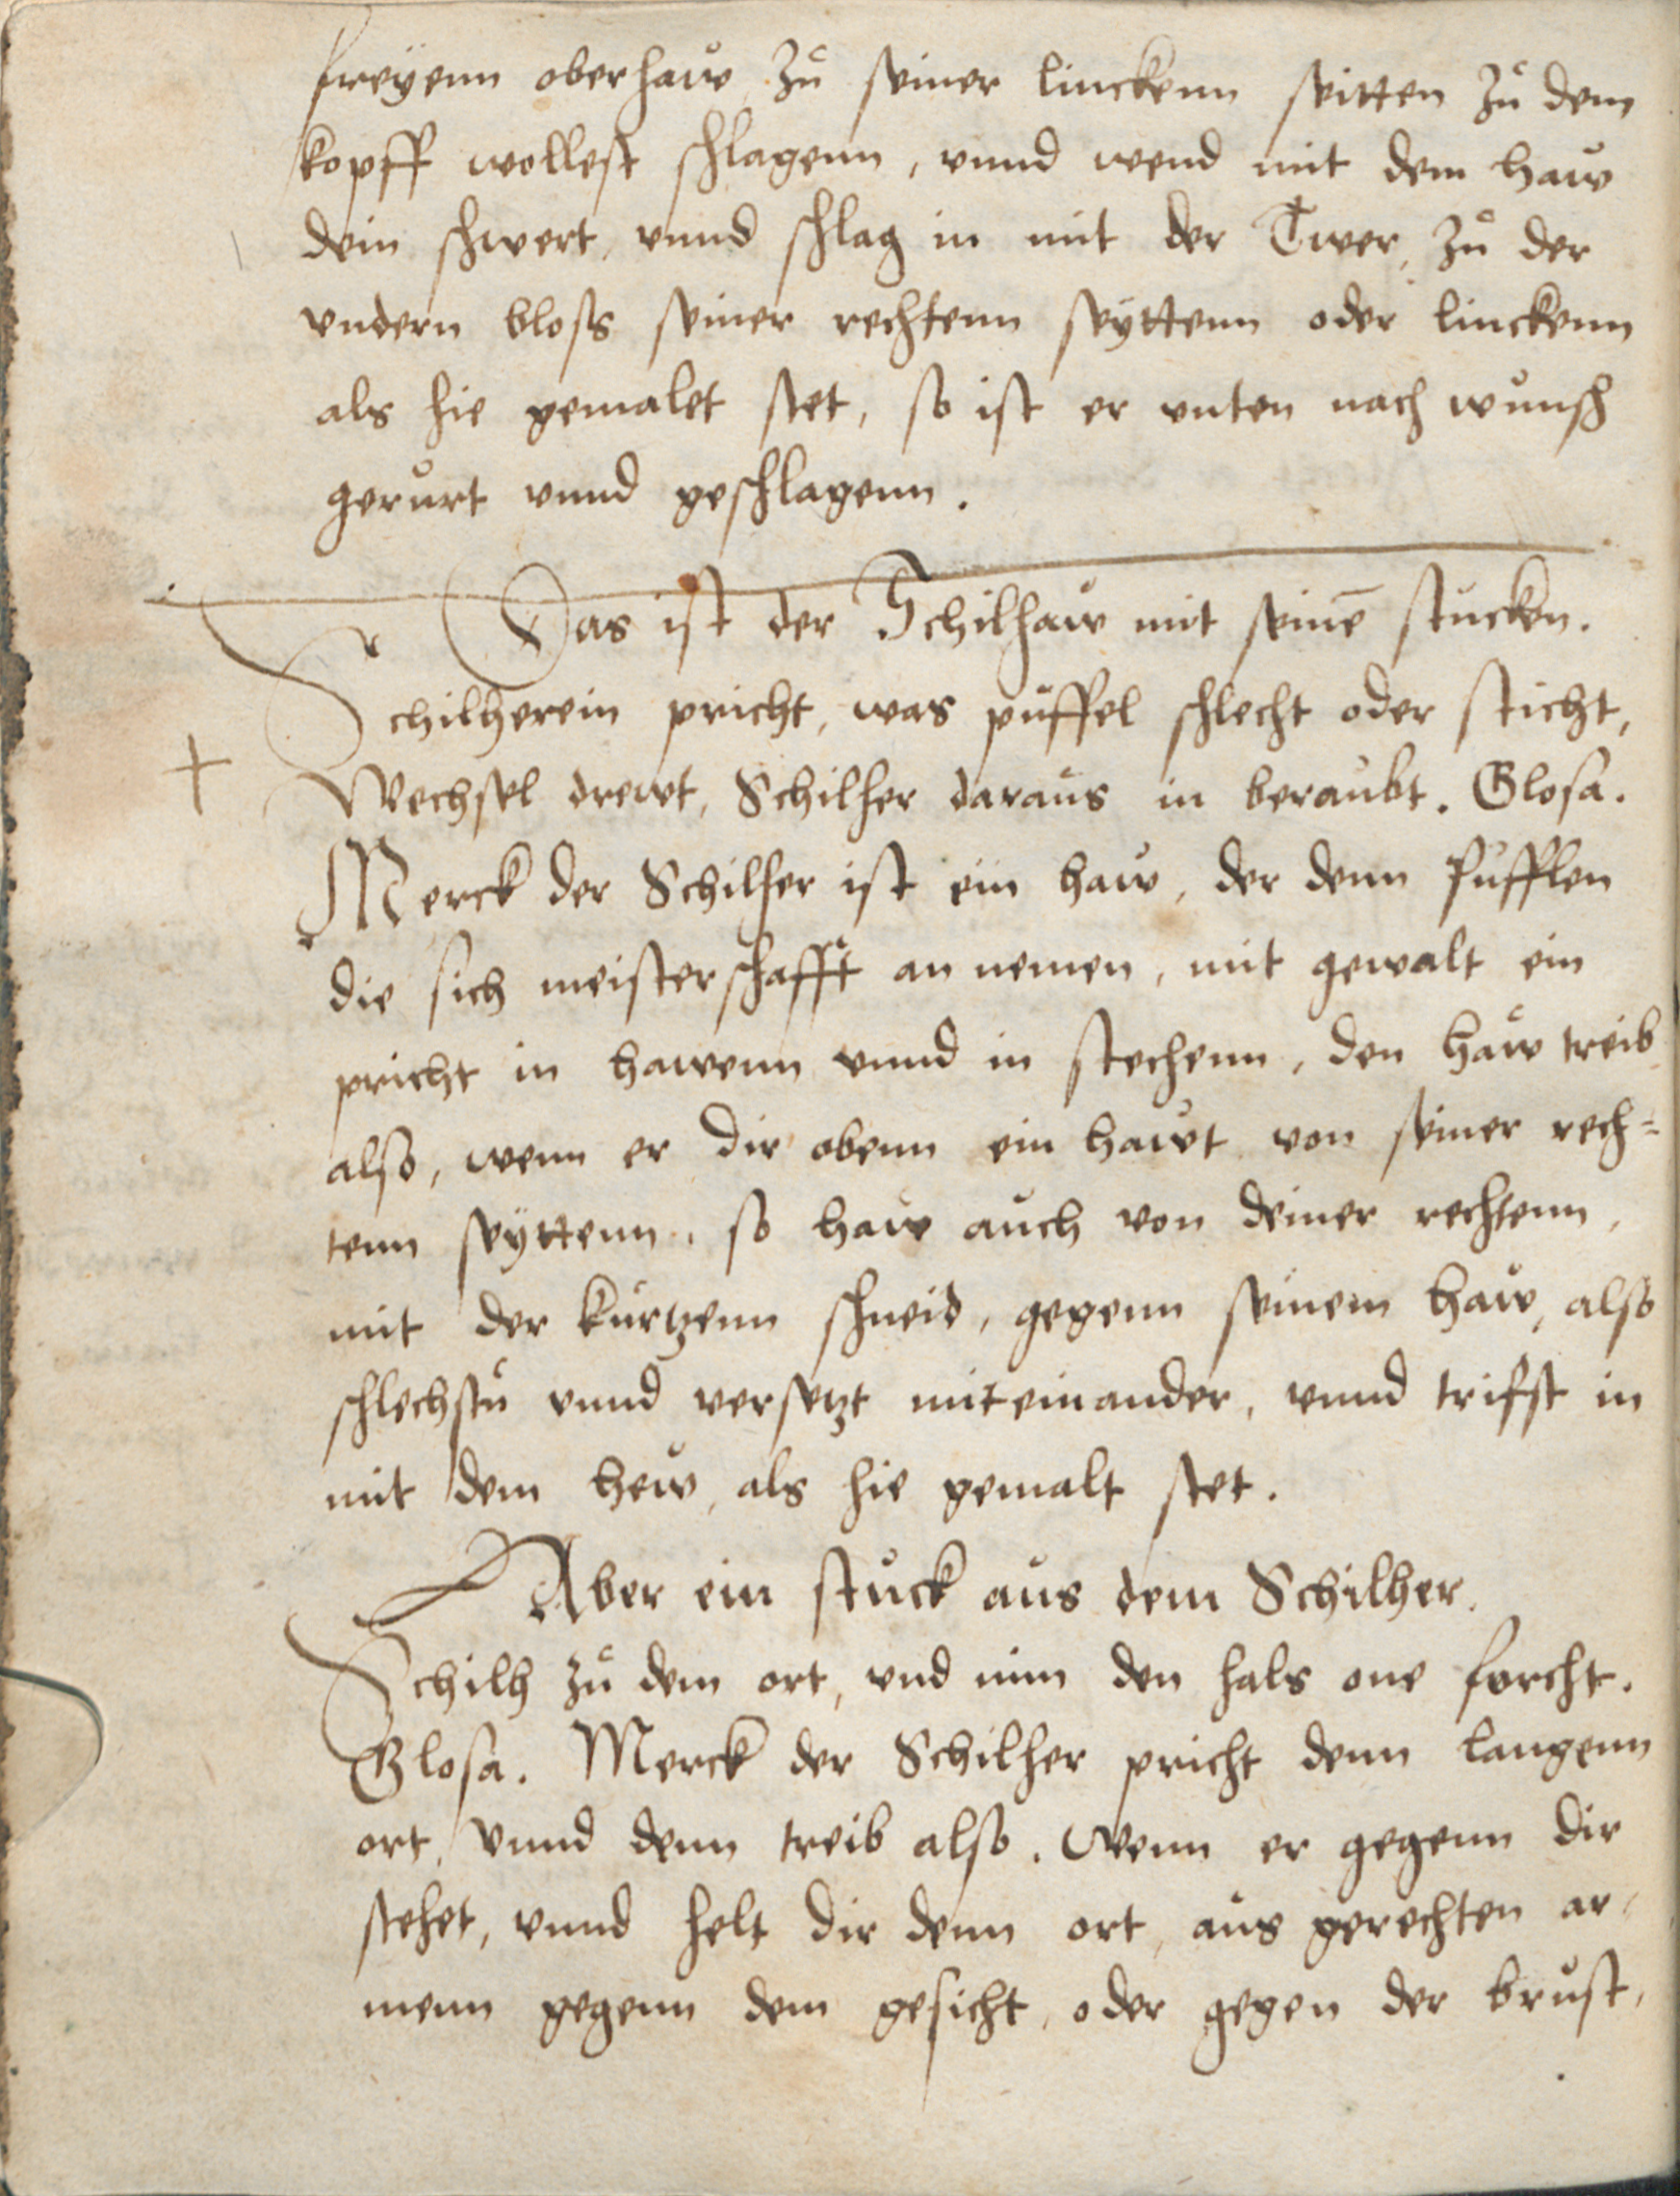 freyenn oberhaw zů seiner linckenn seitten zů dem
kopff wollest schlagenn, vnnd wend mit dem haw
dein schwert, vnnd schlag in mit der Twer, zů der
vndern bloss seiner rechtenn seyttenn oder linckenn
als hie gemalet stet, so ist er vnten nach wunsch
gerůrt vnnd geschlagenn.
Das ist der Schilhaw mit seinē stucken.
Schilherein pricht, was půffel schlecht oder sticht,
Wechsel drewt, Schilher daraůs in beraubt. Glosa.
Merck der Schilher ist ein haw, der denn Pufflen
die sich meisterschafft an nemen, mit gewalt ein
pricht in hawenn vnnd in stechenn, den haw treib
also, wenn er dir obenn ein hawt von seiner rech=
tenn seyttenn, so haw auch von deiner rechtenn,
mit der kurtzenn schneid, gegenn seinem haw, also
schlechstů vnnd versetzt miteinander, vnnd trifst in
mit dem hew, als hie gemalt stet.
Aber ein stuck aus dem Schilher.
Schilh zů dem ort, vnd nim den hals one forcht.
Glosa. Merck der Schilher pricht denn langenn
ort, vnnd denn treib also. Wenn er gegenn dir
stehet, vnnd helt dir denn ort, aůs gerechten ar=
menn gegenn dem gesicht, oder gegen der brůst,